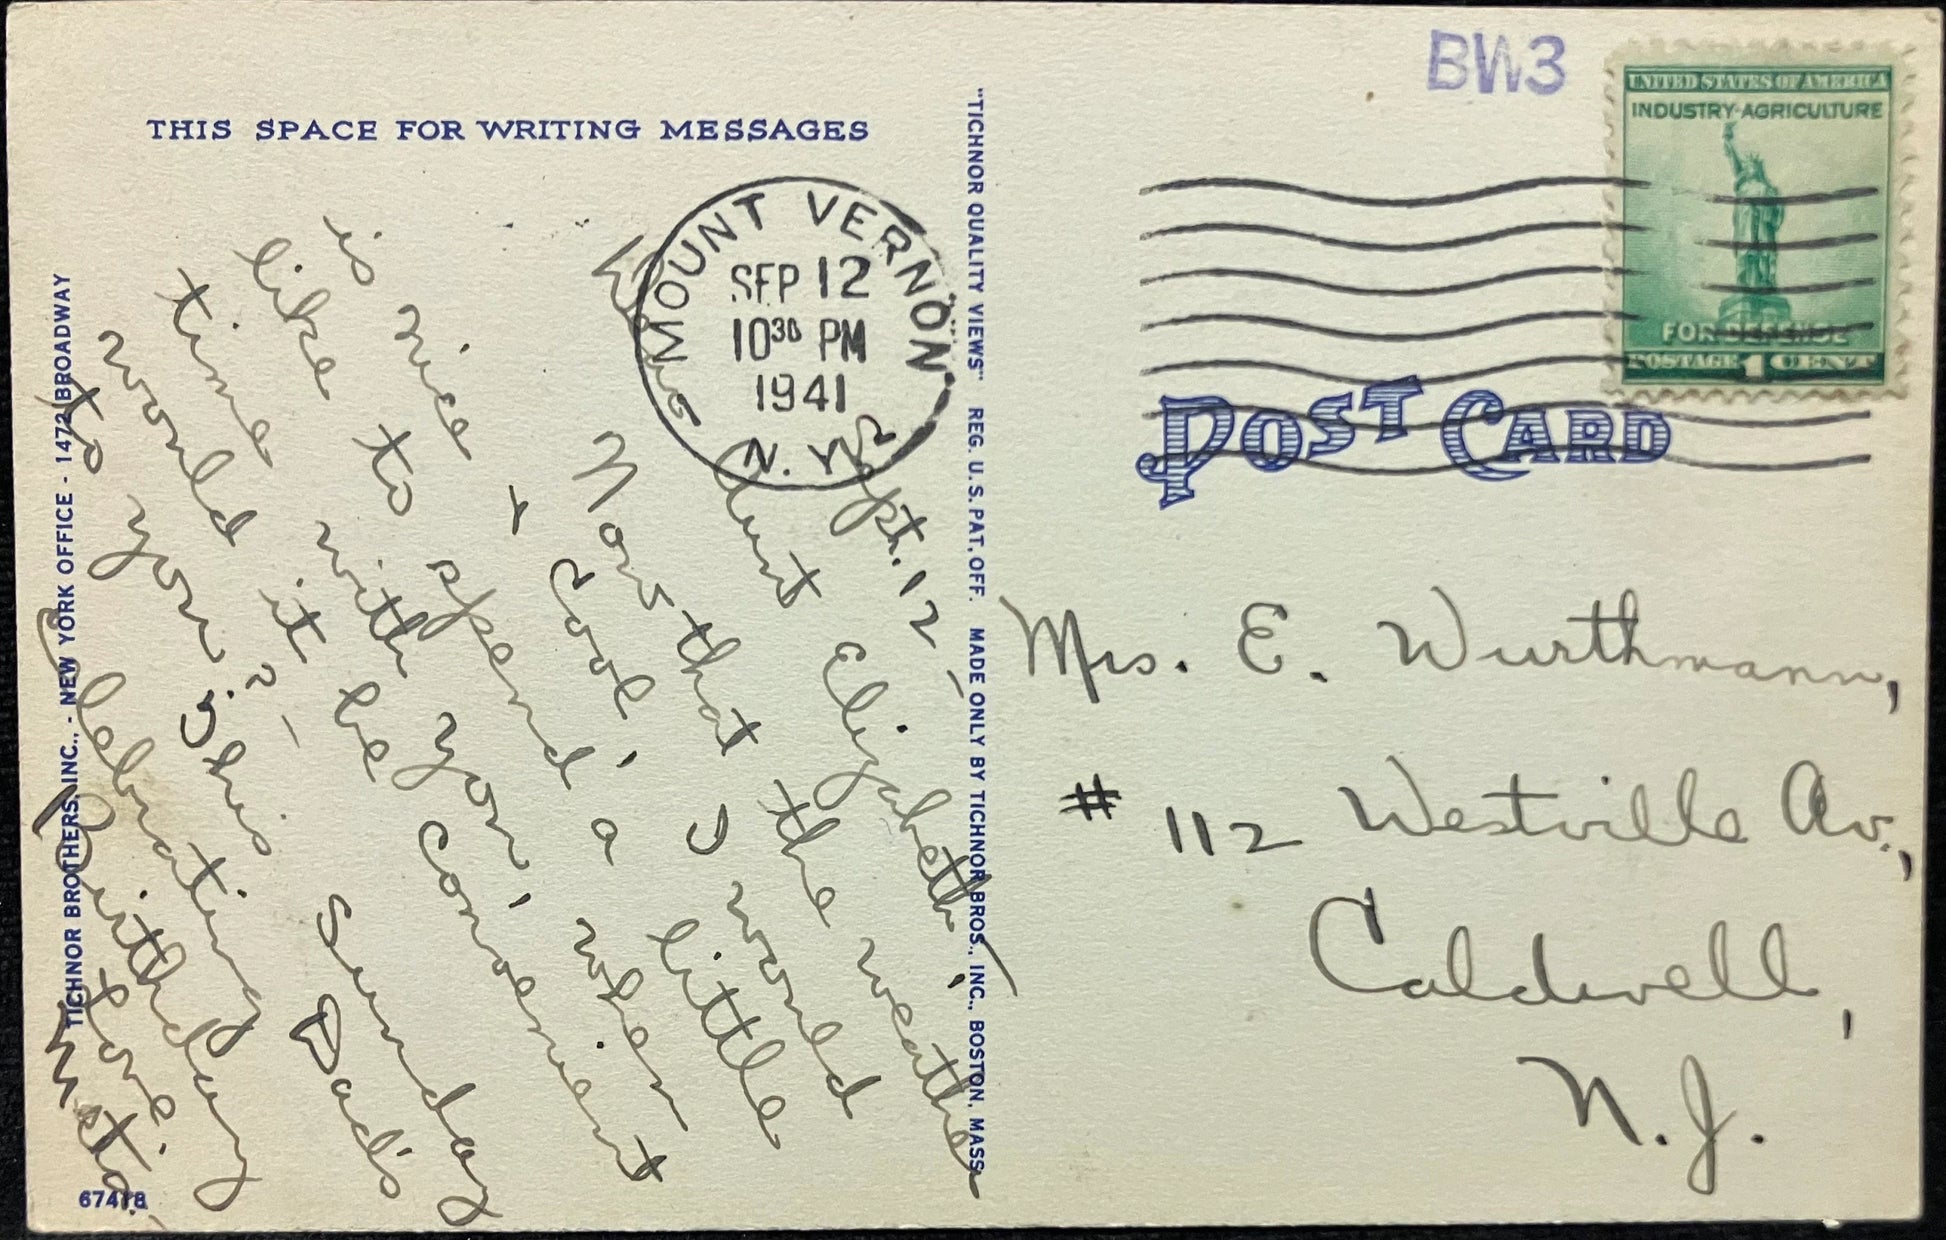 THIS SPACE FOR WRITING MESSAGES
MOUNT VERNON
SEP 12
10 30 PM
1941
N.Y.
Sept. 12 -
Dear Aunt Elizabeth: -
Now that the weather
is nice + cool, I would
like to spend a little
time with you, when
would it be convenient
to you? - This Sunday
Celebrating Dad's
Birthday
Love,
Meta.
67418
TICHNOR BROTHERS, INC., - NEW YORK OFFICE - 1472 BROADWAY
"TICHNOR QUALITY VIEWS" REG. U.S. PAT. OFF. MADE ONLY BY TICHNOR BROS., INC., BOSTON, MASS.
BW3
UNITED STATES OF AMERICA
INDUSTRY-AGRICULTURE
FOR DEFENSE
POSTAGE 1 CENT
POST CARD
Mrs. E. Wurthmann,
# 112 Westville Av.,
Caldwell,
N.J.